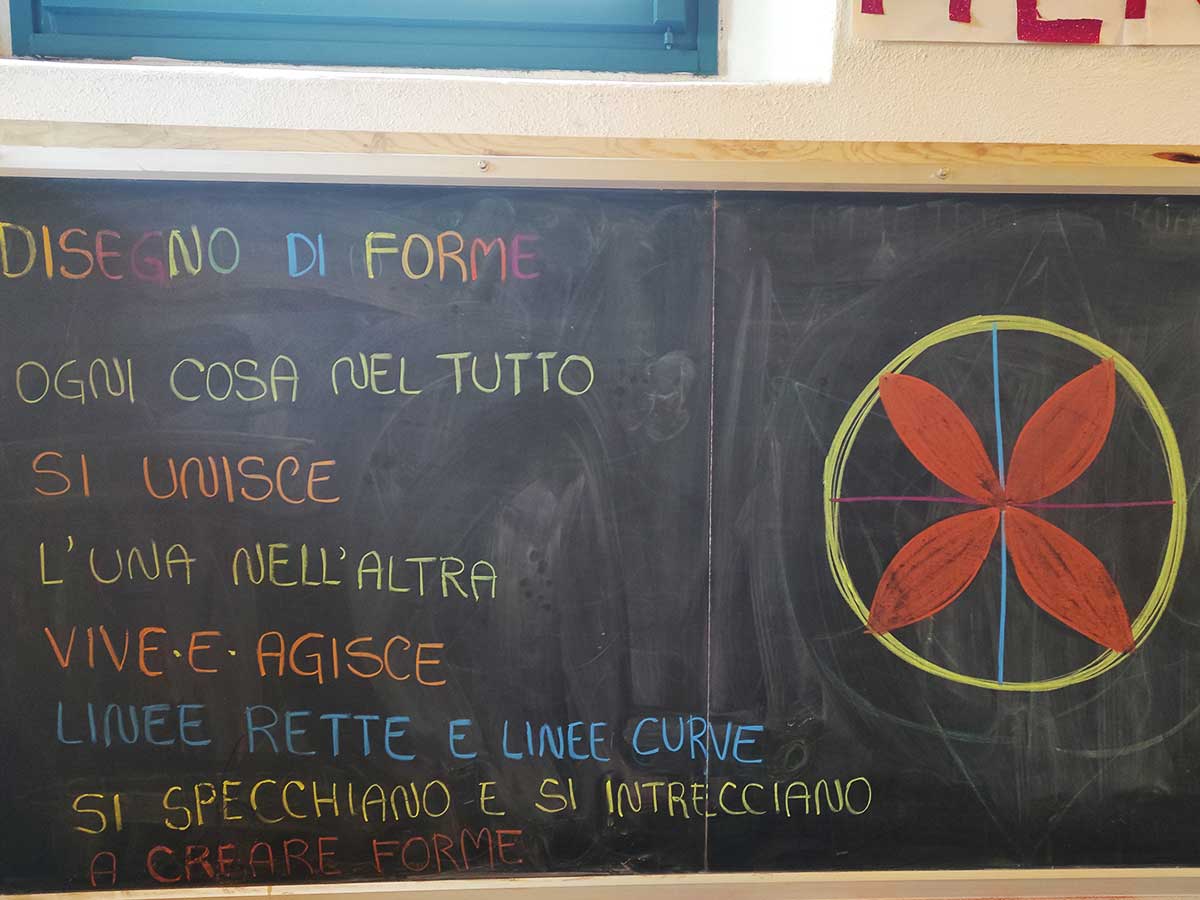 DISEGNO DI FORME
OGNI COSA NEL TUTTO
SI UNISCE
L'UNA NELL'ALTRA
VIVE·E·AGISCE
LINEE RETTE E LINEE CURVE
SI SPECCHIANO E SI INTRECCIANO
A CREARE FORME